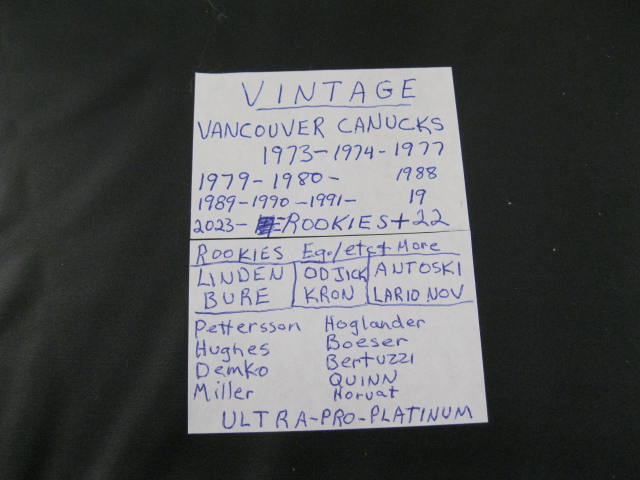 VINTAGE
VANCOUVER CANUCKS
1973-1974-1977
1979-1980- 1988
1989-1990-1991- 19
2023- ROOKIES+22
ROOKIES Eg./etc+ More
LINDEN ODJICK ANTOSKI
BURE KRON LARIONOV
Pettersson Hoglander
Hughes Boeser
Demko Bertuzzi
Miller QUINN
Horvat
ULTRA-PRO-PLATINUM